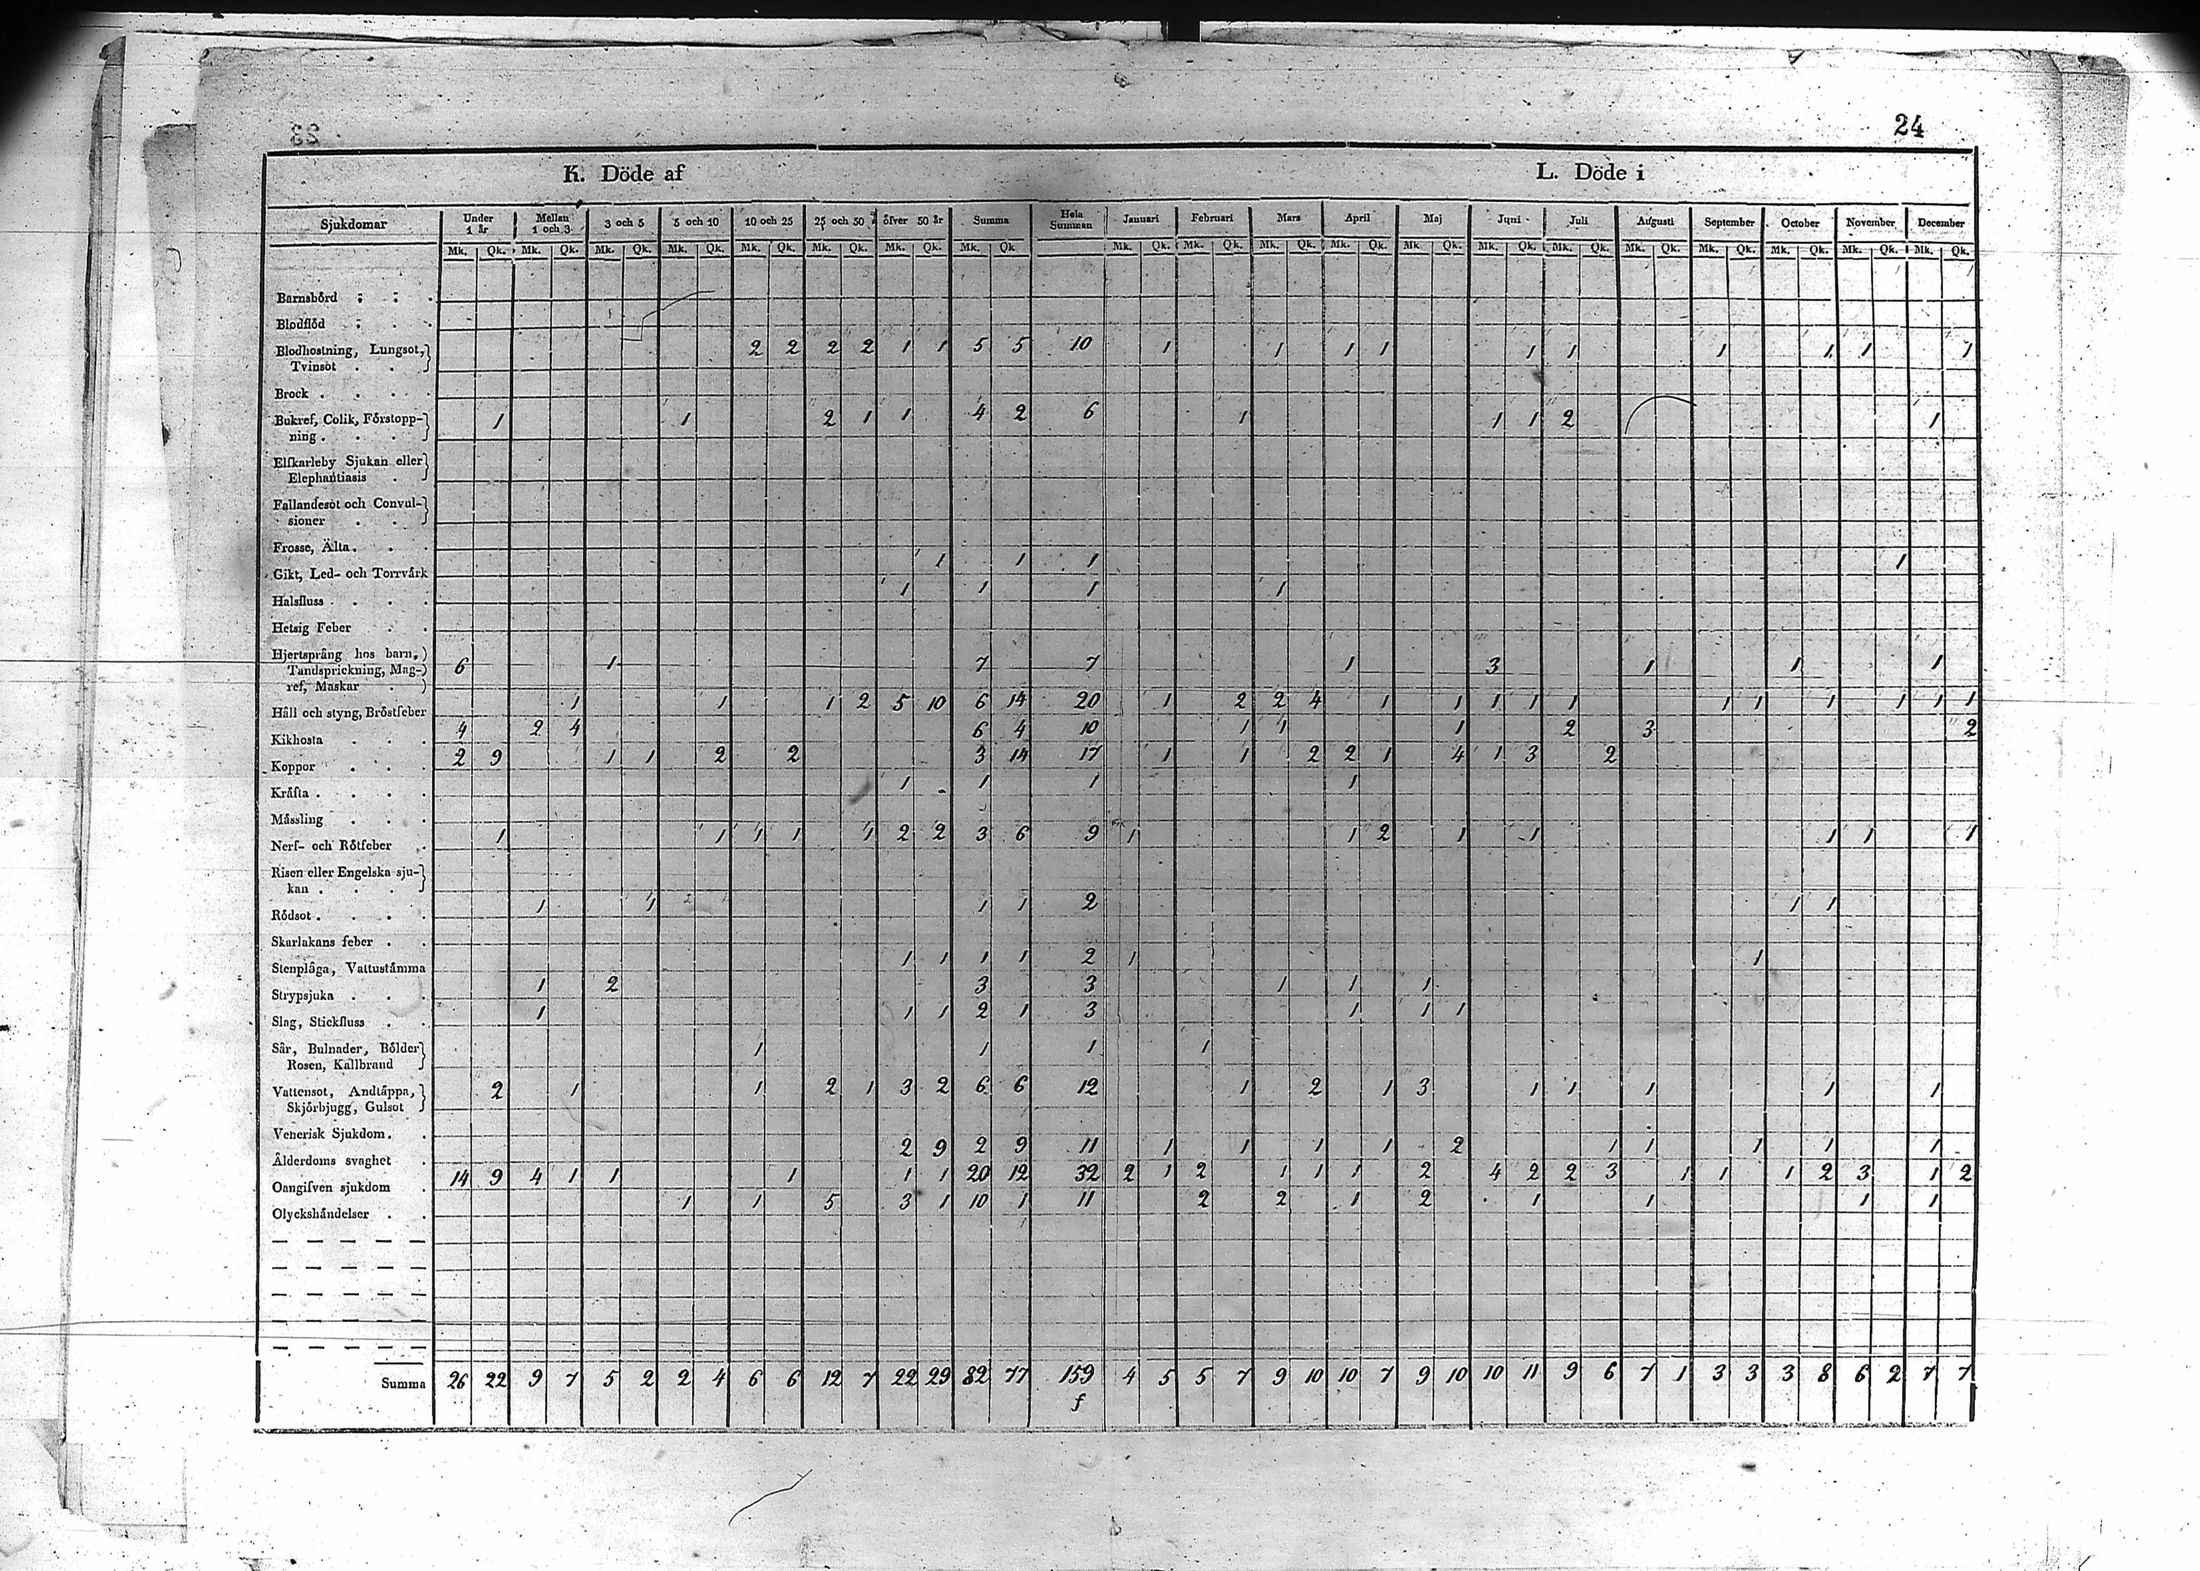 24
K. Döde af L. Döde i
Sjukdomar Under 1 år Mellan 1 och 3 3 och 5 5 och 10 10 och 25 25 och 50 öfver 50 år Summa Hela Summan Januari Februari Mars April Maj Juni Juli Augusti September October November December
Mk. Qk. Mk. Qk. Mk. Qk. Mk. Qk. Mk. Qk. Mk. Qk. Mk. Qk. Mk. Qk Mk. Qk. Mk. Qk. Mk. Qk. Mk. Qk. Mk. Qk. Mk. Qk. Mk. Qk. Mk. Qk. Mk. Qk. Mk. Qk. Mk. Qk. Mk. Qk.
Barnsbörd
Blodflöd
Blodhostning, Lungsot, 2 2 2 2 1 1 5 5 10 1 1 1 1 1 1 1 1 1 1
Tvinsot
Brock
Bukref, Colik, Förstopp- 1 1 2 1 1 4 2 6 1 1 1 2 1
ning
Elfkarleby Sjukan eller
Elephantiasis
Fallandesot och Convul-
sioner
Frosse, Älta
Gikt, Led- och Torrvärk 1 1 1 1
Halsfluss 1 1 1 1
Hetsig Feber
Hjertsprång hos barn,
Tandsprickning, Mag- 6 1 7 7 1 3 1 1 1
ref, Maskar
Håll och styng, Bröstfeber 1 1 1 2 5 10 6 14 20 1 2 2 4 1 1 1 1 1 1 1 1 1 1 1
Kikhosta 4 2 4 6 4 10 1 1 1 2 3 2
Koppor 2 9 1 1 2 2 3 14 17 1 1 2 2 1 4 1 3 2
Kräfta 1 1 1 1
Mässling
Nerf- och Rötfeber 1 1 1 1 1 2 2 3 6 9 1 1 2 1 1 1 1 1
Risen eller Engelska sju-
kan
Rödsot 1 1 1 1 2 1 1
Skarlakans feber
Stenplåga, Vattustämma 1 1 1 1 2 1 1
Strypsjuka 1 2 3 3 1 1 1
Slag, Stickfluss 1 1 1 2 1 3 1 1 1
Sår, Bulnader, Bölder 1 1 1 1
Rosen, Kallbrand
Vattensot, Andtäppa, 2 1 1 2 1 3 2 6 6 12 1 2 1 3 1 1 1 1 1
Skjörbjugg, Gulsot
Venerisk Sjukdom
Ålderdoms svaghet 2 9 2 9 11 1 1 1 1 2 1 1 1 1 1
Oangifven sjukdom 14 9 4 1 1 1 1 1 20 12 32 2 1 2 1 1 1 2 4 2 2 3 1 1 1 2 3 1 2
Olyckshändelser 1 1 5 3 1 10 1 11 2 2 1 2 1 1 1 1
Summa 26 22 9 7 5 2 2 4 6 6 12 7 22 29 82 77 159 4 5 5 7 9 10 10 7 9 10 10 11 9 6 7 1 3 3 3 8 6 2 7 7
f